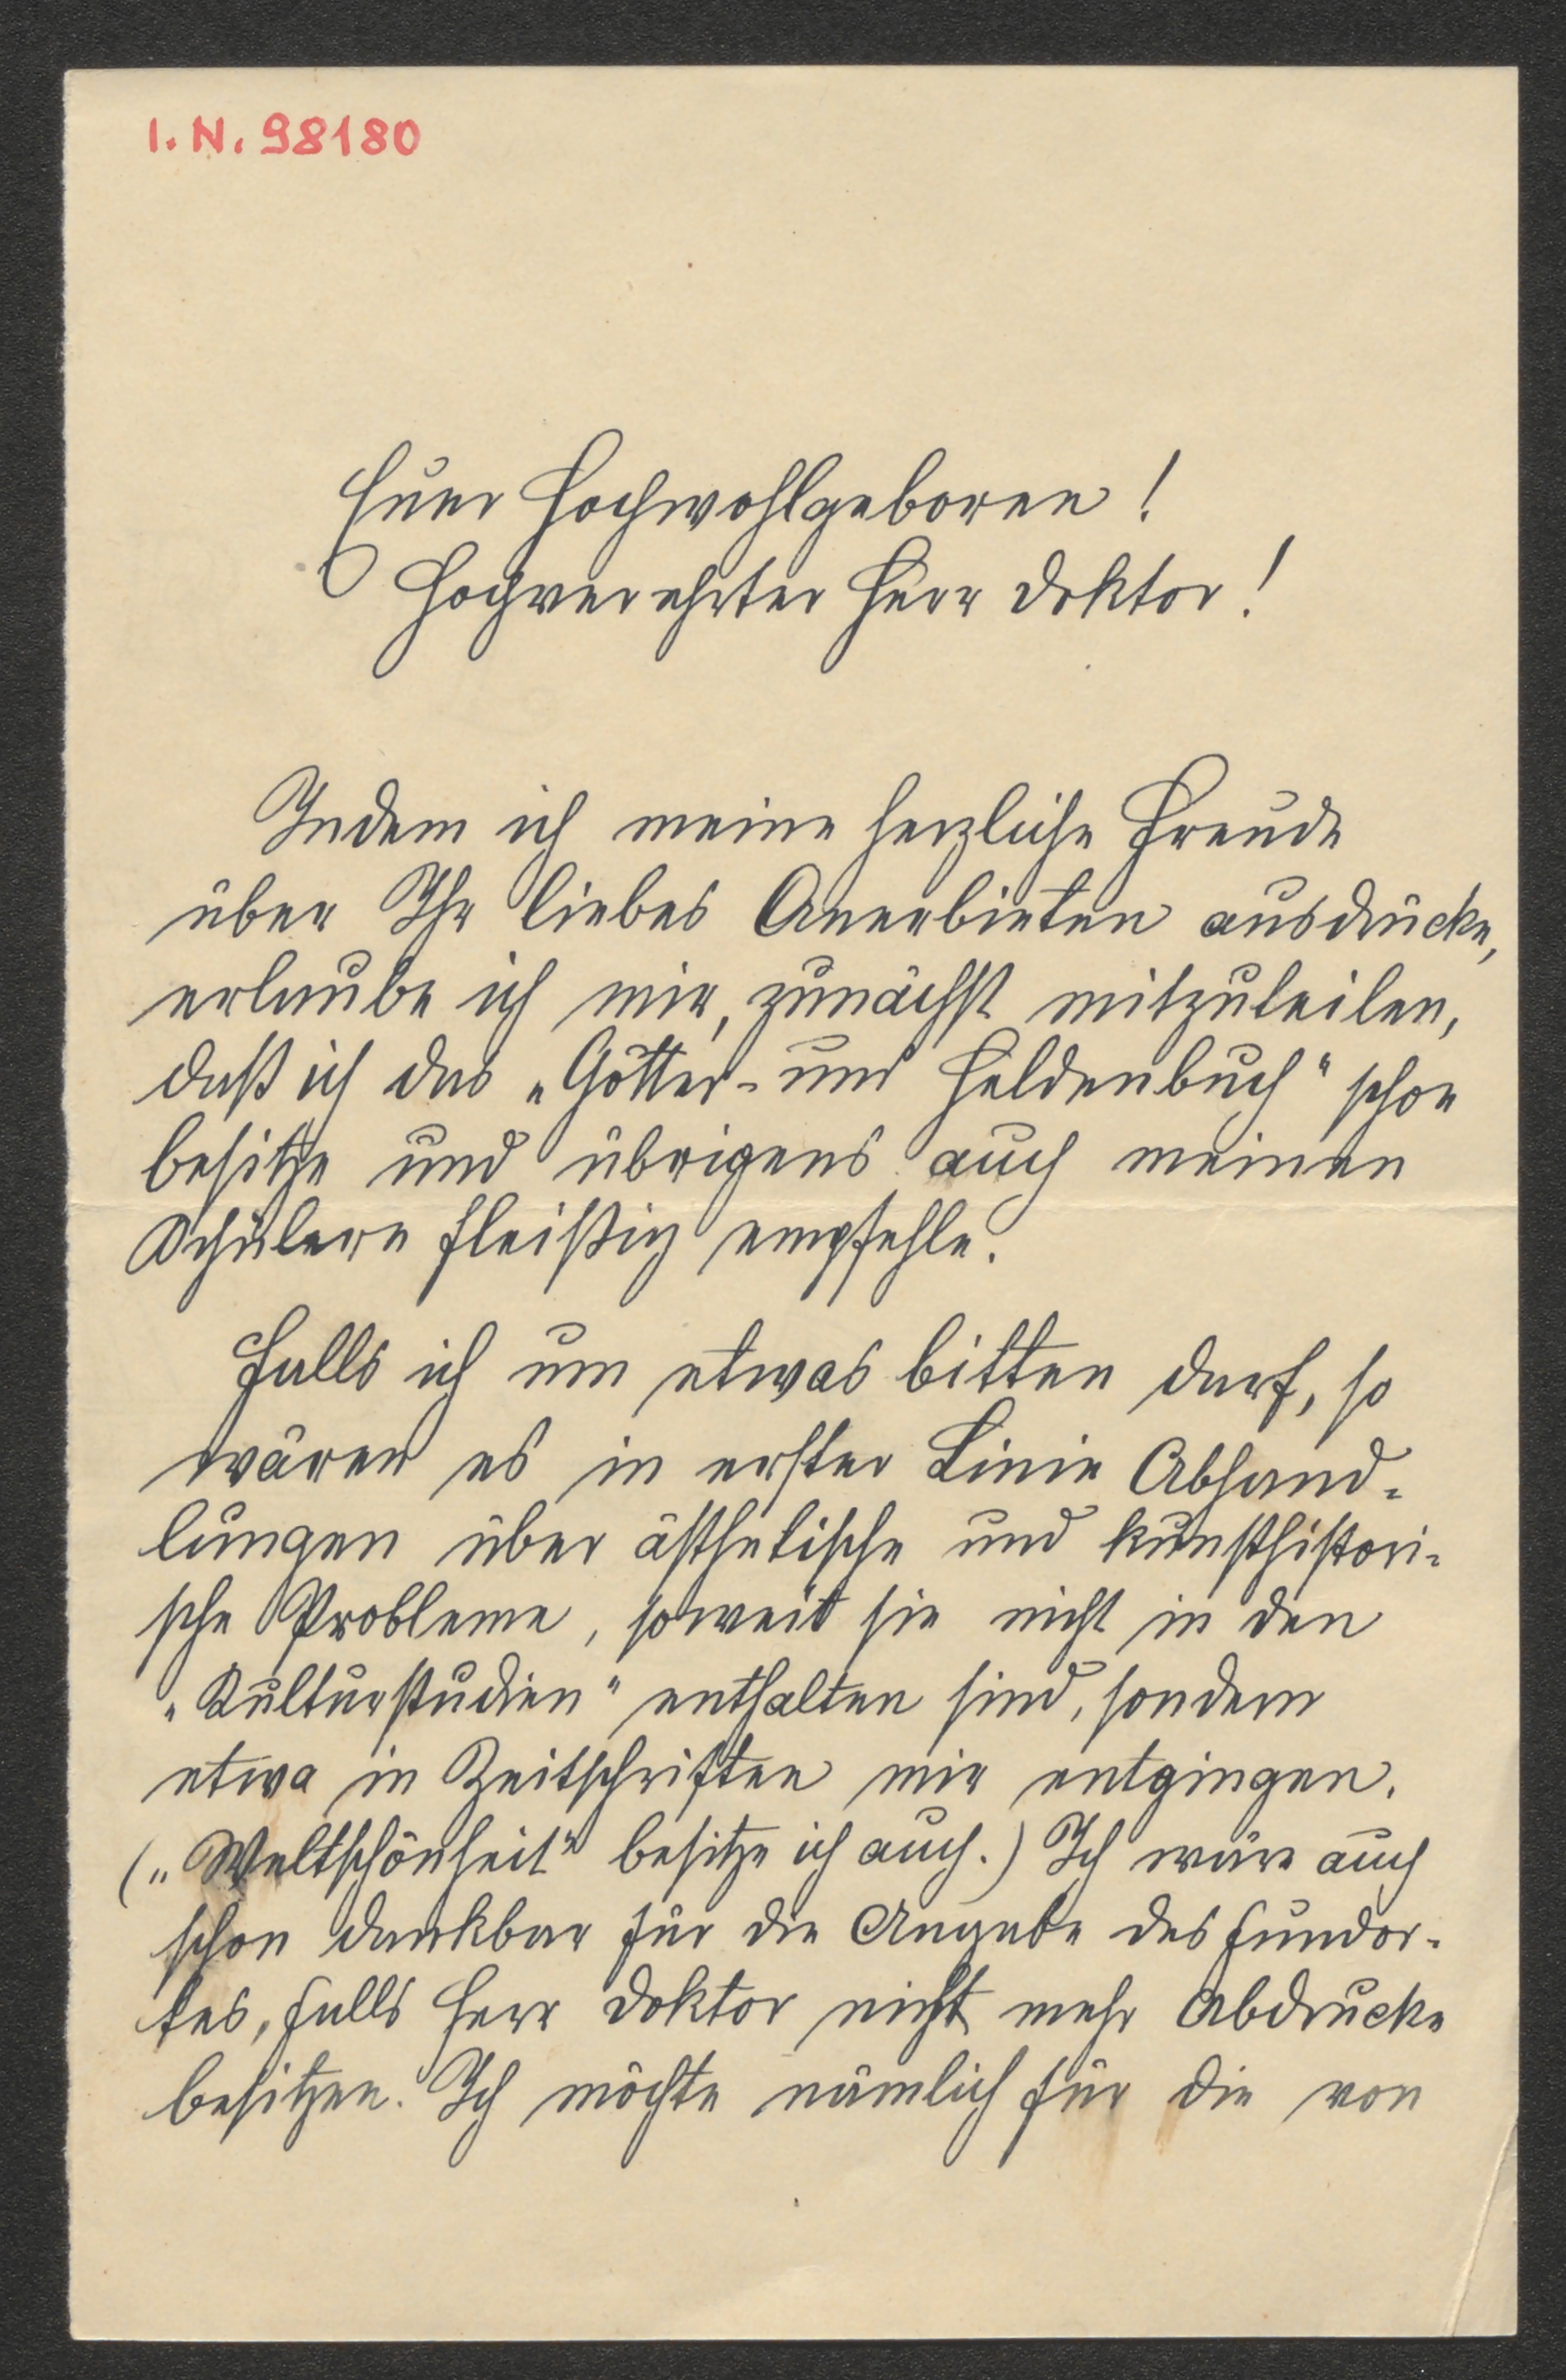 I. N. 98180
Euer Hochwohlgeboren!
Hochverehrter Herr Doktor!
Indem ich meine herzliche Freude
über Ihr liebes Anerbieten ausdrücke,
erlaube ich mir, zunächst mitzuteilen,
daß ich das „Götter- und Heldenbuch" schon
besitze und übrigens auch meinen
Schülern fleißig empfehle.
Falls ich um etwas bitten darf, so
wären es in erster Linie Abhand-
lungen über ästhetische und kunsthistori-
sche Probleme, soweit sie nicht in den
„Kulturstudien" enthalten sind, sondern
etwa in Zeitschriften mir entgingen.
(„Weltschönheit" besitze ich auch.) Ich wäre auch
schon dankbar für die Angabe des Fundor-
tes, falls Herr Doktor nicht mehr Abdrucke
besitzen. Ich möchte nämlich für die von